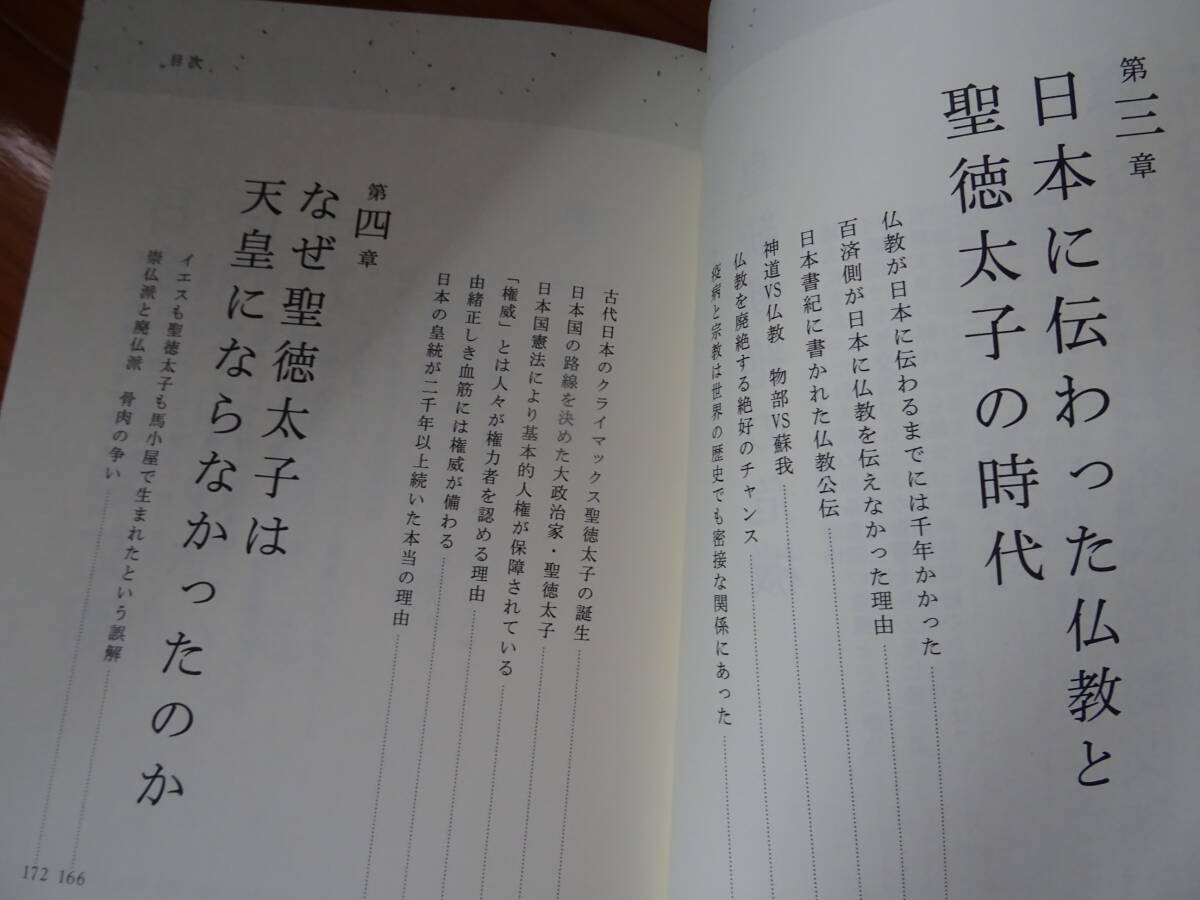 第三章
日本に伝わった仏教と
聖徳太子の時代
仏教が日本に伝わるまでには千年かかった
百済側が日本に仏教を伝えなかった理由
日本書紀に書かれた仏教公伝
神道VS仏教 物部VS蘇我
仏教を廃絶する絶好のチャンス
疫病と宗教は世界の歴史でも密接な関係にあった
目次
古代日本のクライマックス聖徳太子の誕生
日本国の路線を決めた大政治家・聖徳太子
日本国憲法により基本的人権が保障されている
「権威」とは人々が権力者を認める理由
由緒正しき血筋には権威が備わる
日本の皇統が二千年以上続いた本当の理由
第四章
なぜ聖徳太子は
天皇にならなかったのか
イエスも聖徳太子も馬小屋で生まれたという誤解
崇仏派と廃仏派 骨肉の争い
172 166